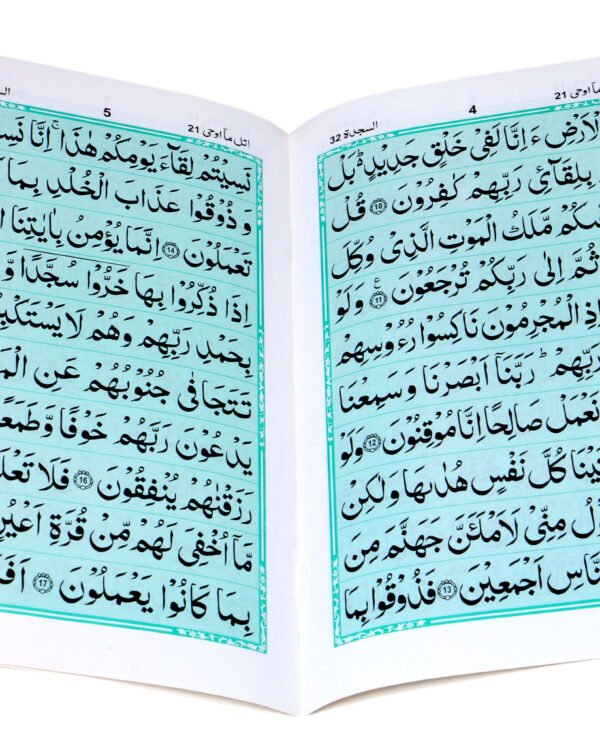 مآ اوحی 21
4
السجدة 32
الْاَرْضِ ءَاِنَّا لَفِیْ خَلْقٍ جَدِیْدٍ ؕ بَلْ
بِلِقَآئِ رَبِّهِمْ كٰفِرُوْنَ 10 قُلْ
مَّلَكُ الْمَوْتِ الَّذِیْ وُكِّلَ
ثُمَّ اِلٰی رَبِّكُمْ تُرْجَعُوْنَ 11 ع وَلَوْ
اِذِ الْمُجْرِمُوْنَ نَاكِسُوْا رُءُوْسِهِمْ
رَبِّهِمْ ؕ رَبَّنَاۤ اَبْصَرْنَا وَسَمِعْنَا
نَعْمَلْ صَالِحًا اِنَّا مُوْقِنُوْنَ 12 وَلَوْ
كُلَّ نَفْسٍ هُدٰىهَا وَلٰكِنْ
مِنِّیْ لَاَمْلَئَنَّ جَهَنَّمَ مِنَ
النَّاسِ اَجْمَعِیْنَ 13 فَذُوْقُوْا بِمَا
اتل مآ اوحی 21
5
نَسِیْتُمْ لِقَآءَ یَوْمِكُمْ هٰذَا ۚ اِنَّا
وَ ذُوْقُوْا عَذَابَ الْخُلْدِ بِمَا
تَعْمَلُوْنَ 14 اِنَّمَا یُؤْمِنُ بِاٰیٰتِنَا
اِذَا ذُكِّرُوْا بِهَا خَرُّوْا سُجَّدًا وَّ
بِحَمْدِ رَبِّهِمْ وَهُمْ لَا
تَتَجَافٰی جُنُوْبُهُمْ عَنِ
یَدْعُوْنَ رَبَّهُمْ خَوْفًا وَّطَمَعًا
رَزَقْنٰهُمْ یُنْفِقُوْنَ 16 فَلَا
مَّاۤ اُخْفِیَ لَهُمْ مِّنْ قُرَّةِ
بِمَا كَانُوْا یَعْمَلُوْنَ 17